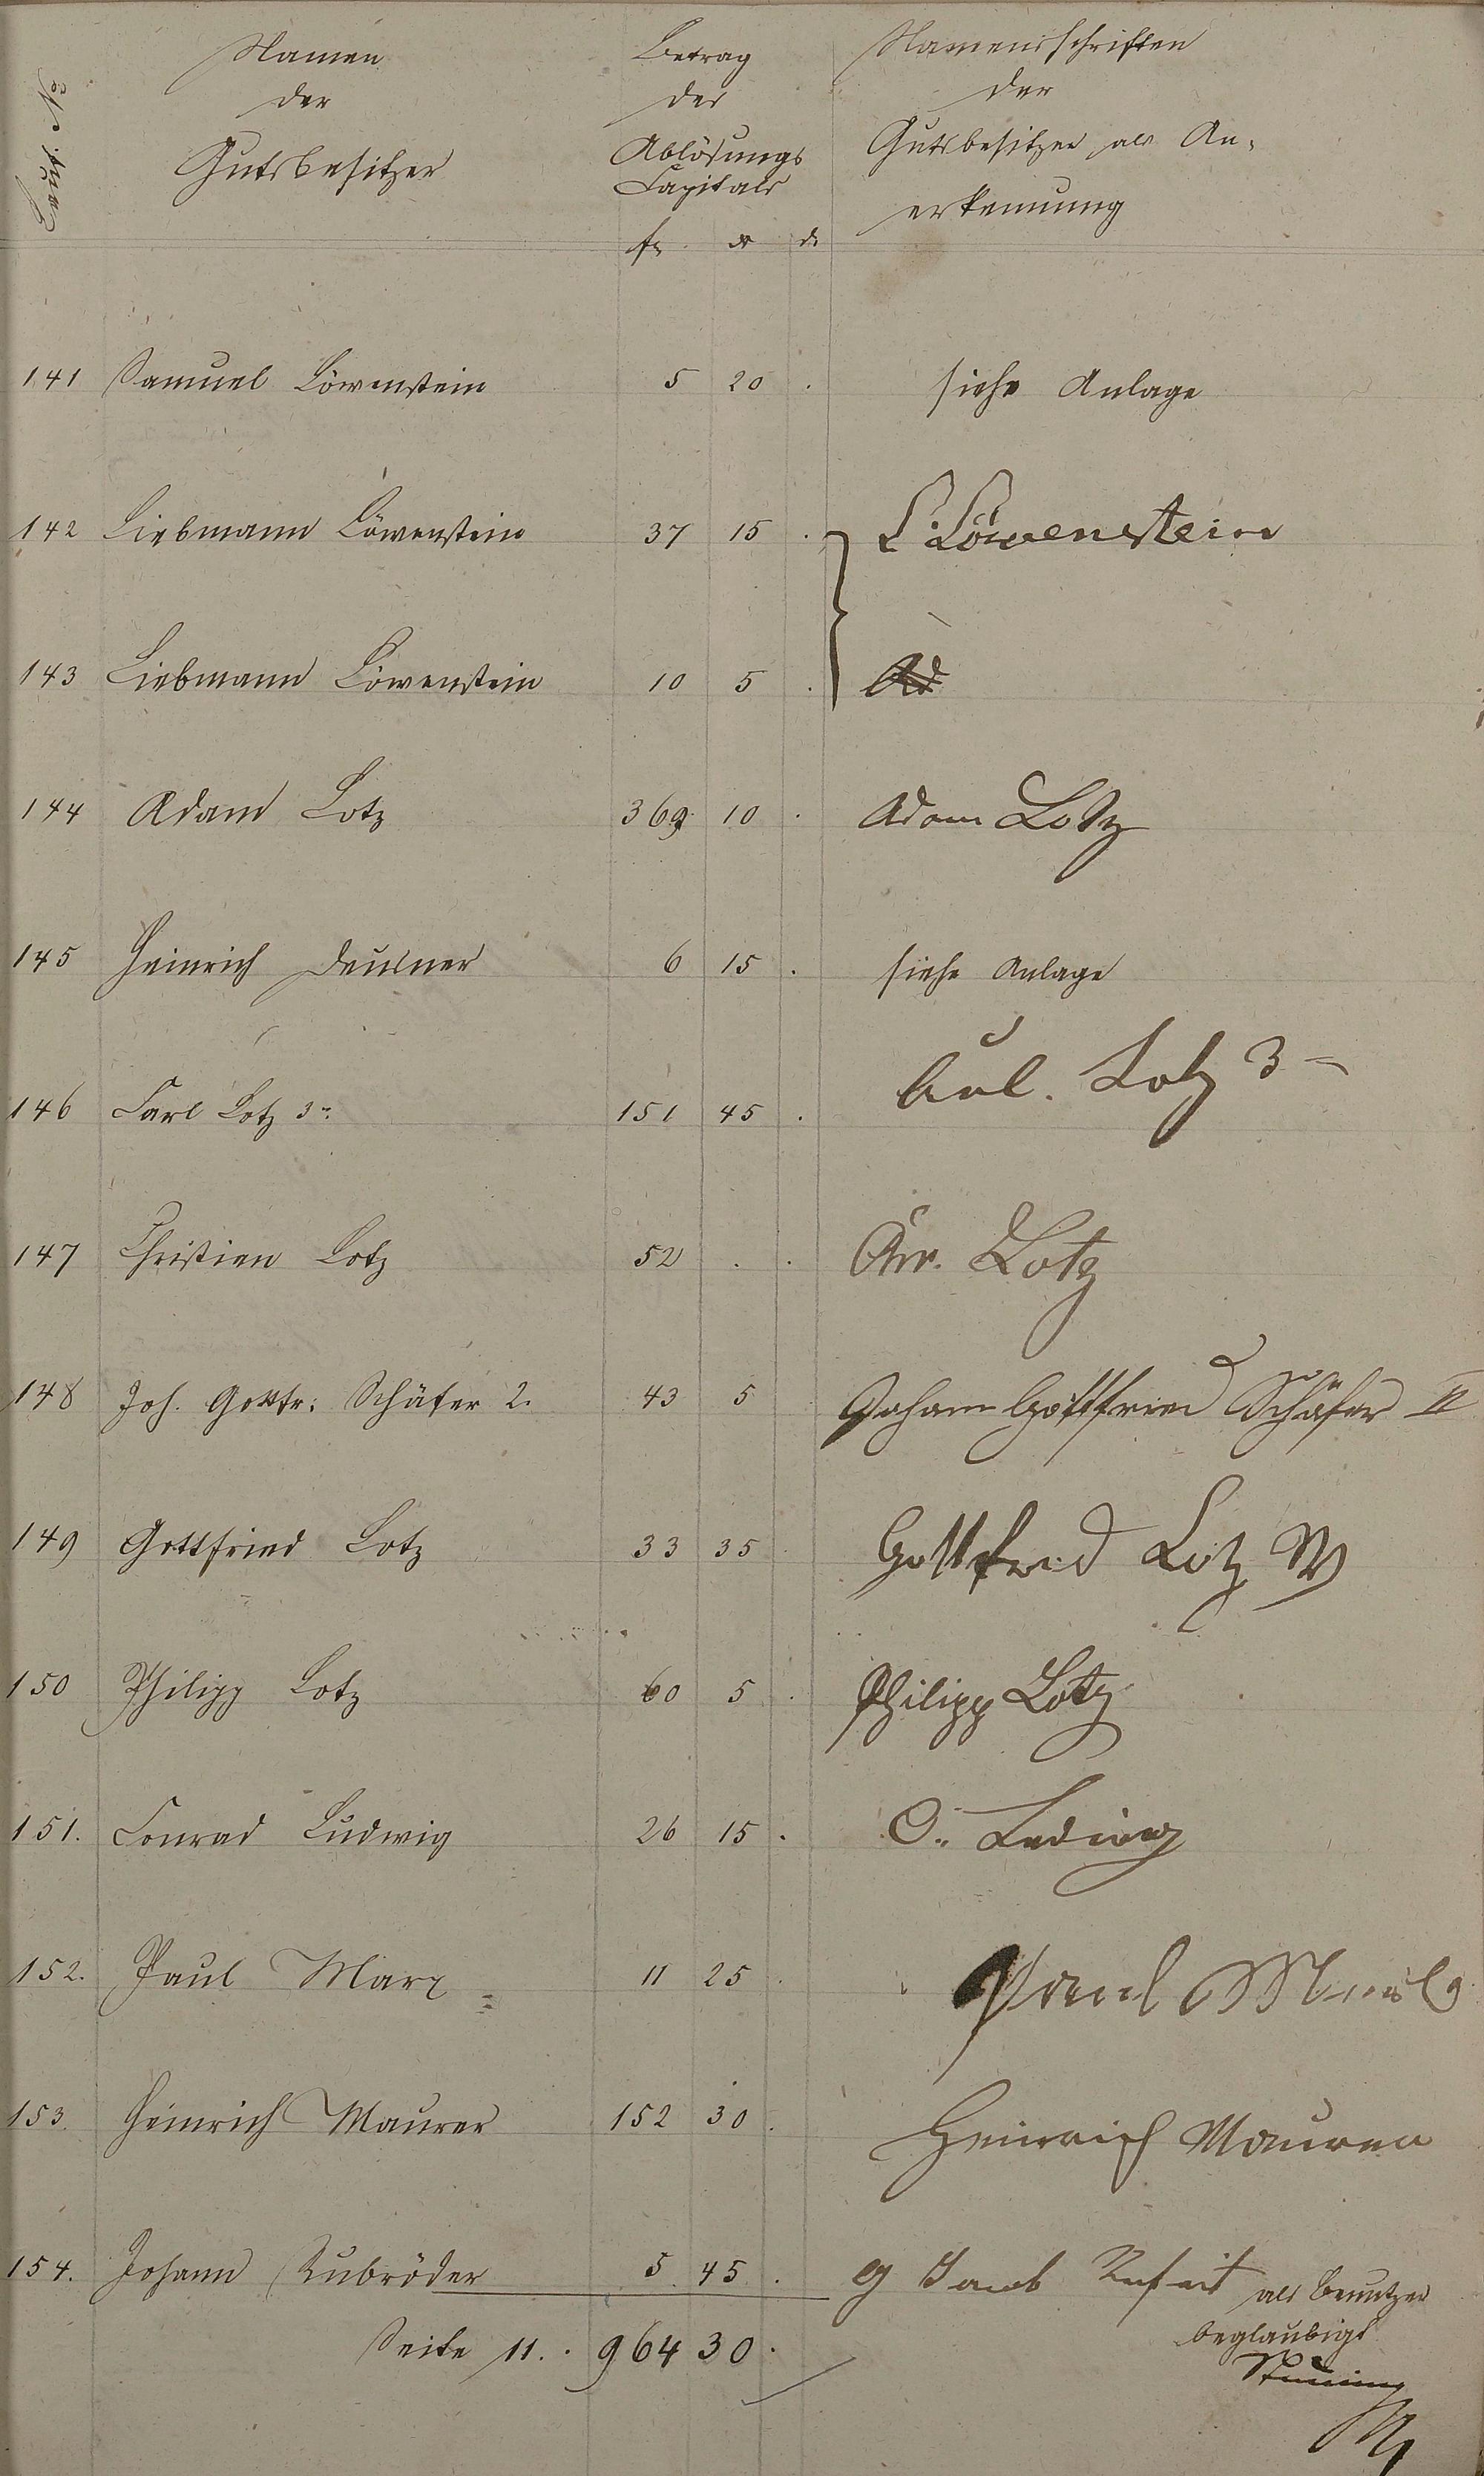 Namen
der
Gutsbesitzer
Betrag
des
Ablösungs
Capitals
Namensschriften
der
Gutsbesitzer als An-
erkennung
fl. x d.
141 Samuel Löwenstein 5 20 . siehe Anlage
142 Liebmann Löwenstein 37 15 . L. Löwenstein
143 Liebmann Löwenstein 10 5 .
144 Adam Lotz 369 10 . Adam Lotz
145 Heinrich Deusner 6 15 . siehe Anlage
146 Carl Lotz 3r 151 45 . Lotz 3
147 Christian Lotz 52 . . Lotz
148 Joh. Gottfr: Schäfer 2. 43 5 Johann Gottfried Schäfer II
149 Gottfried Lotz 33 35 Gottfried Lotz
150 Philipp Lotz 60 5 . Philipp Lotz
151. Conrad Ludwig 26 15 . C. Ludwig
152. Paul Marx 11 25 . Paul
153. Heinrich Maurer 152 30 . Heinrich Maurer
154. Johann Rubröder 5 45 . Jacob als Benutzer
beglaubigt
Seite 11. . 964 30 .